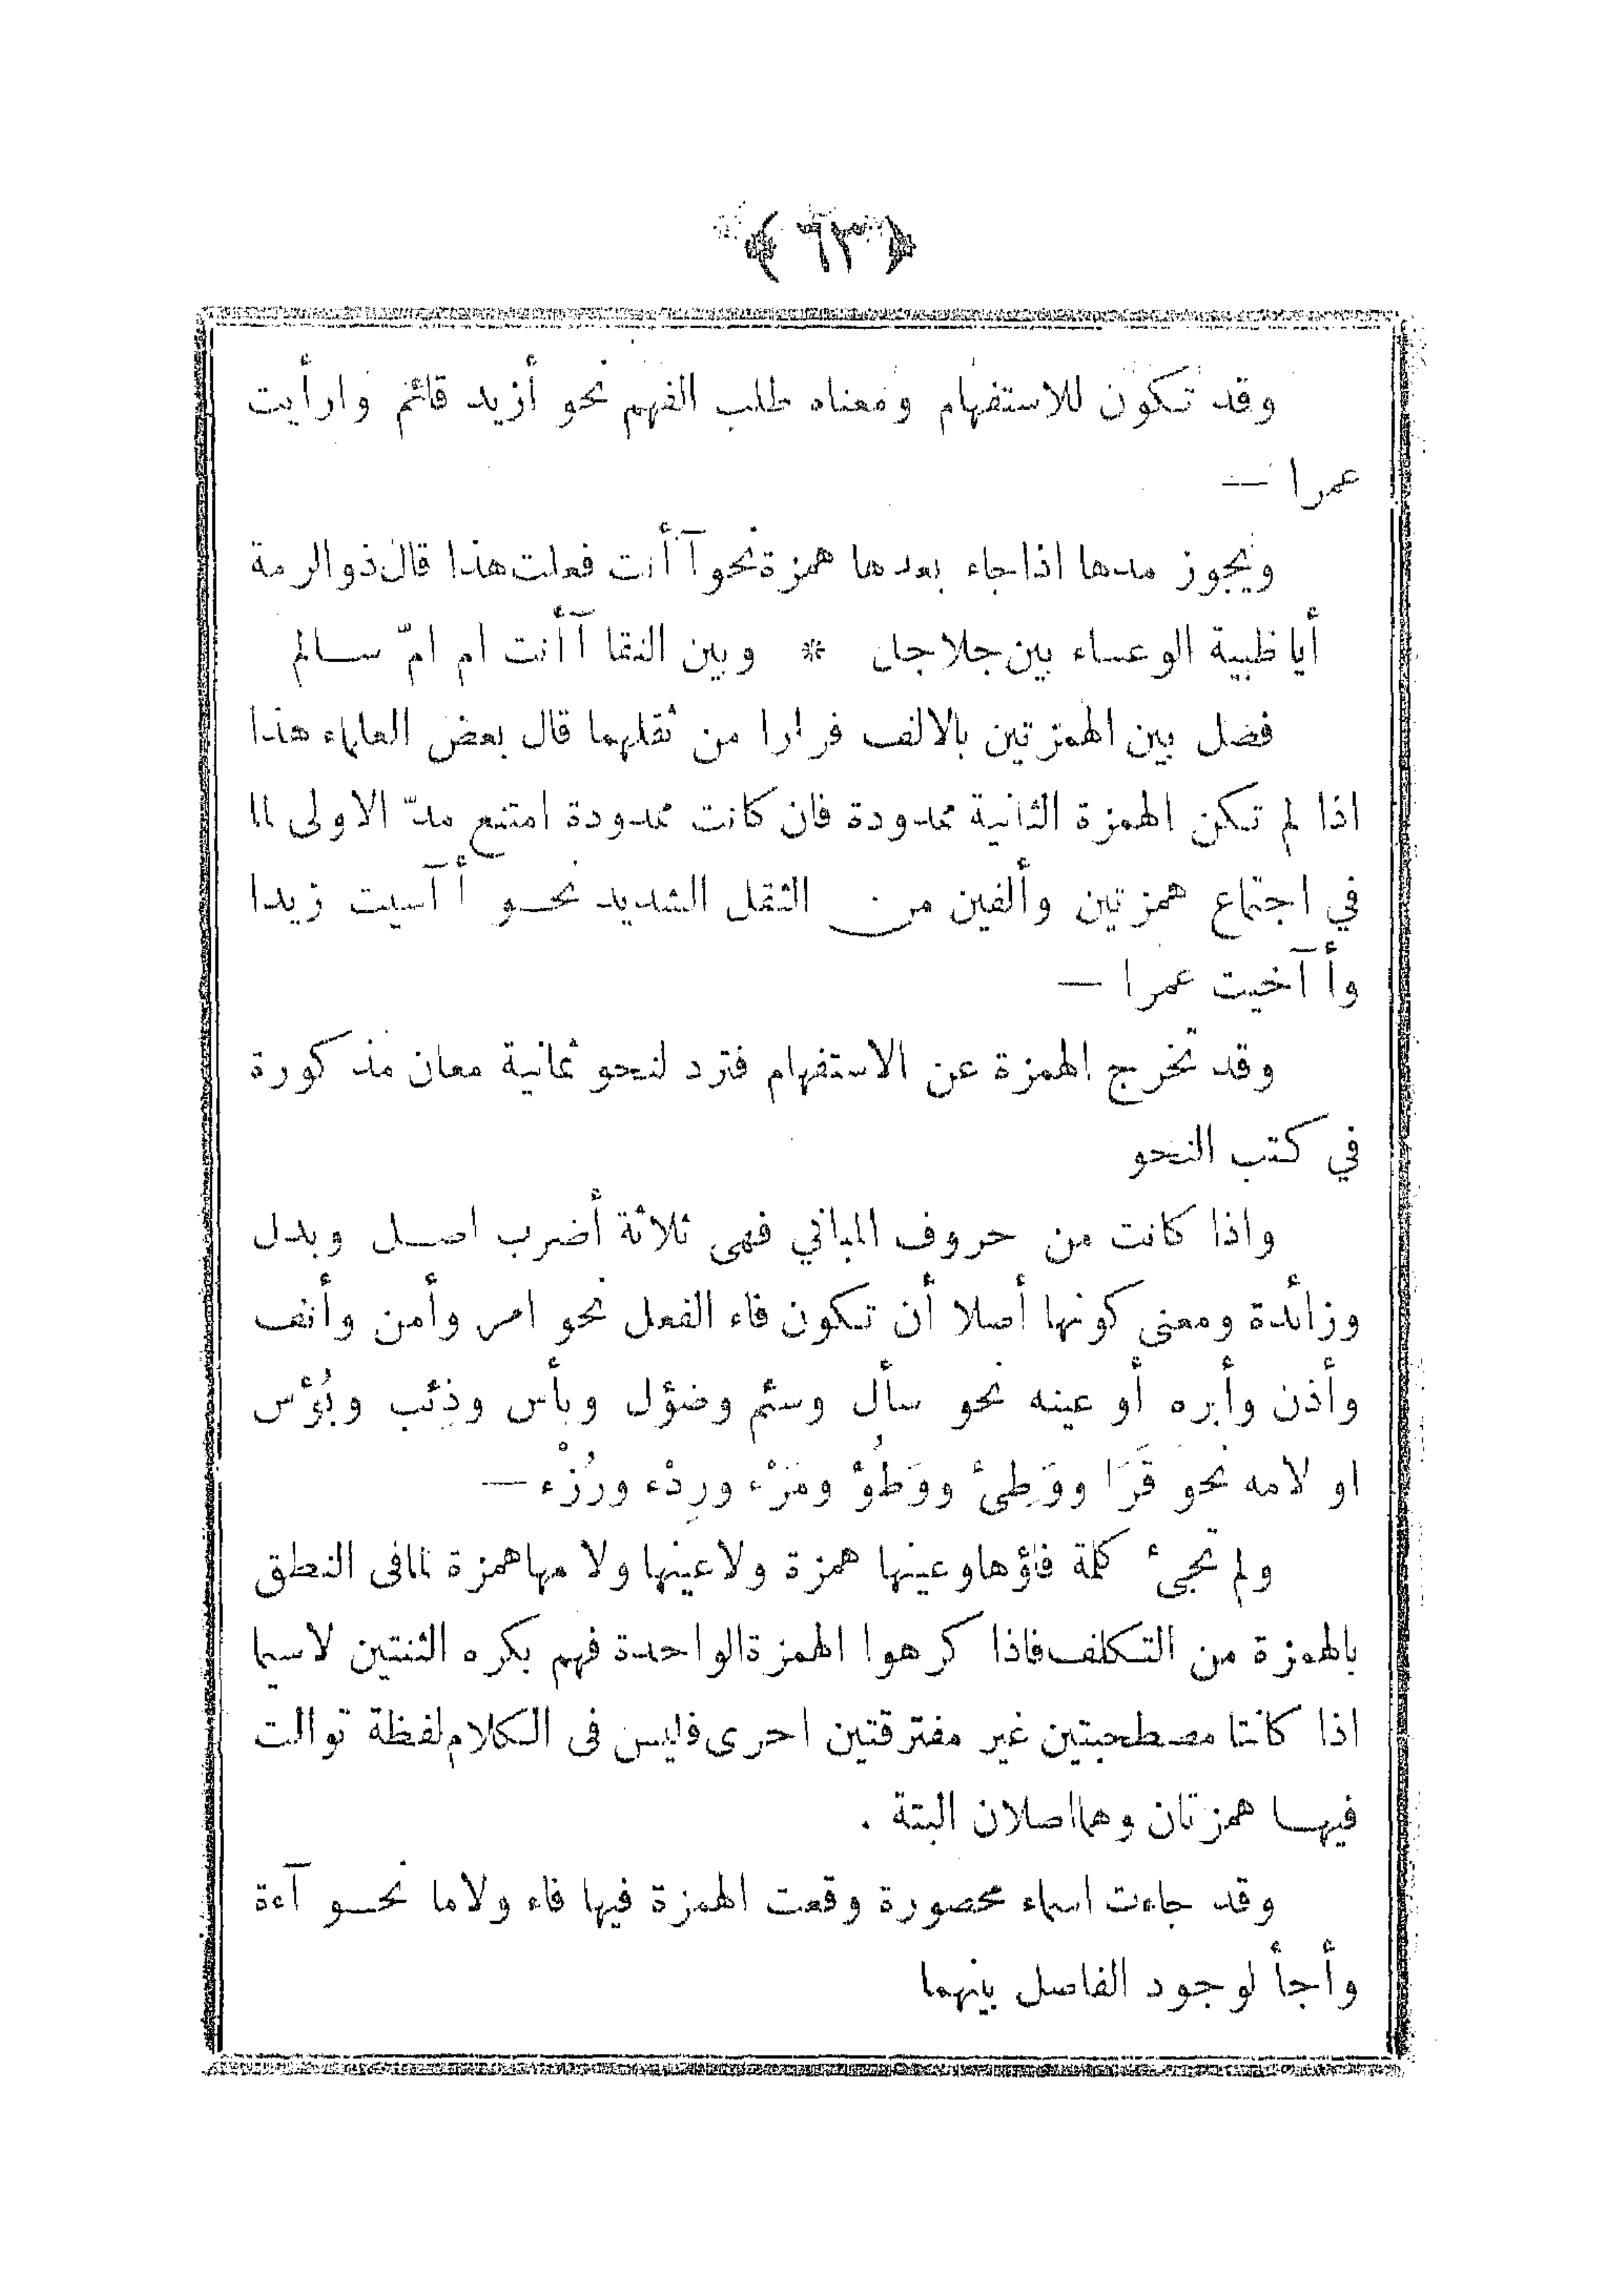 ﴿ ٦٣ ﴾
وقد تكون للاستفهام ومعناه طلب الفهم نحو أزيد قائم وارأيت
عمرا —
ويجوز مدها اذا جاء بعدها همزة نحو آ أنت فعلت هذا قال ذو الرمة
أيا ظبية الوعساء بين جلاجل * وبين النقا آ أنت ام امّ سالم
فضل بين الهمزتين بالالف فرارا من ثقلهما قال بعض العلماء هذا
اذا لم تكن الهمزة الثانية ممدودة فان كانت ممدودة امتنع مدّ الاولى لما
في اجتماع همزتين وألفين من الثقل الشديد نحو أ آسيت زيدا
وأ آخيت عمرا —
وقد تخرج الهمزة عن الاستفهام فترد لنحو ثمانية معان مذكورة
في كتب النحو
واذا كانت من حروف المباني فهى ثلاثة أضرب اصل وبدل
وزائدة ومعنى كونها أصلا أن تكون فاء الفعل نحو امر وأمن وأنف
وأذن وأبره أو عينه نحو سأل وسئم وضؤل وبأس وذِئب وبُؤس
او لامه نحو قَرَا ووَطِئ ووَطُؤ ومَرْء ورِدْء ورُزْء —
ولم تجئ كلمة فاؤها وعينها همزة ولا عينها ولا مها همزة لما فى النطق
بالهمزة من التكلف فاذا كرهوا الهمزة الواحدة فهم بكره الثنتين لاسيما
اذا كانتا مصطحبتين غير مفترقتين احرى فليس فى الكلام لفظة توالت
فيها همزتان وهما اصلان البتة .
وقد جاءت اسماء محصورة وقعت الهمزة فيها فاء ولاما نحو آءة
وأجأ لوجود الفاصل بينهما